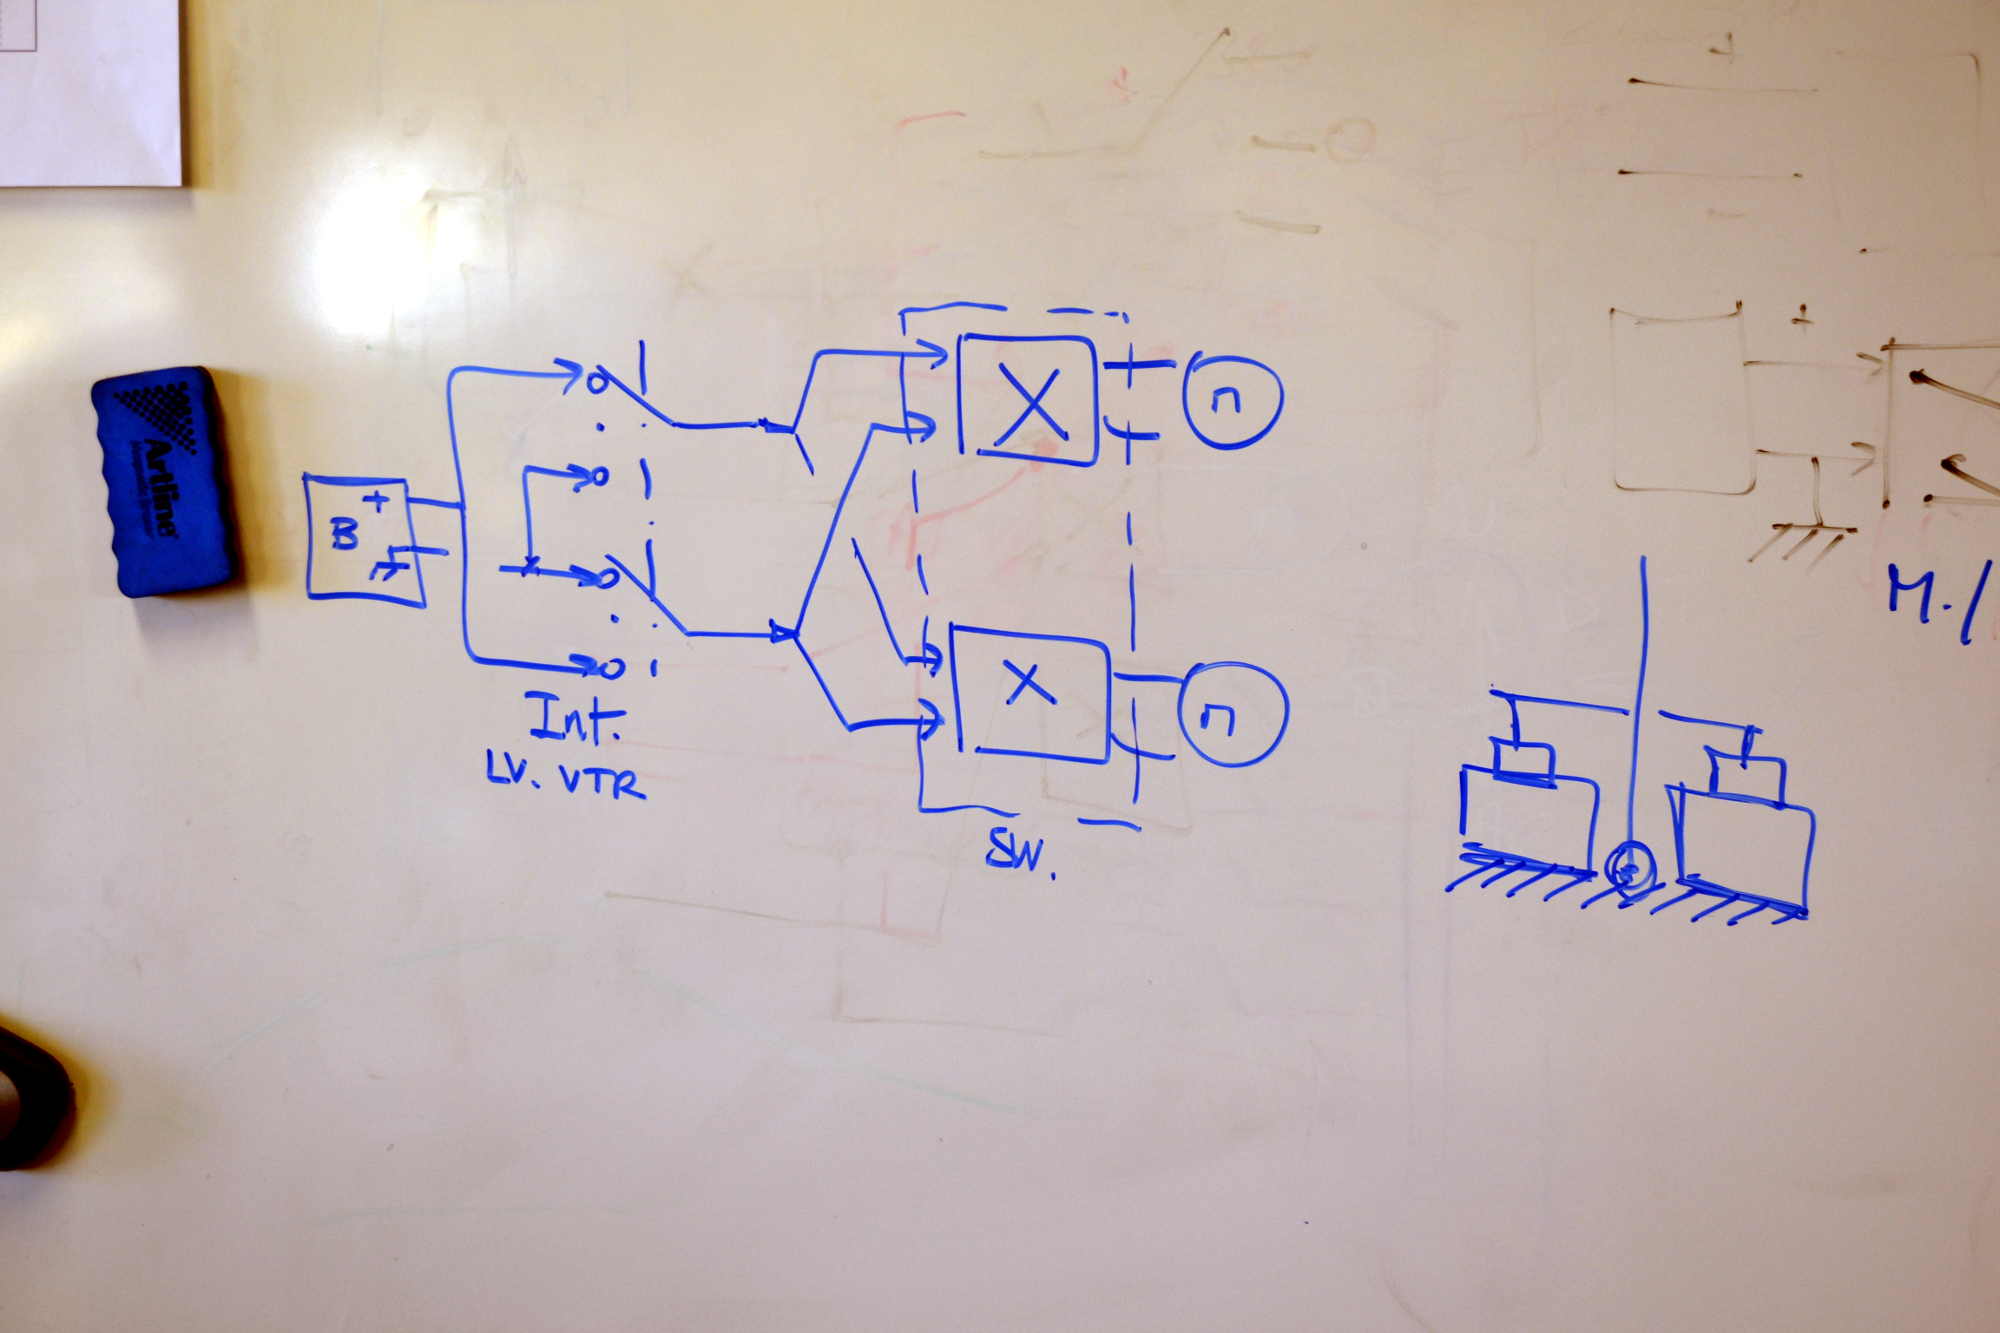 Artline
+
B
X
n
Int.
LV. VTR
X
n
SW.
+
-
+
M./